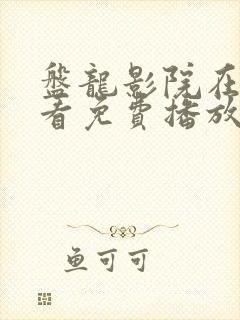 盤龍影院在
看免費播放
鱼可可